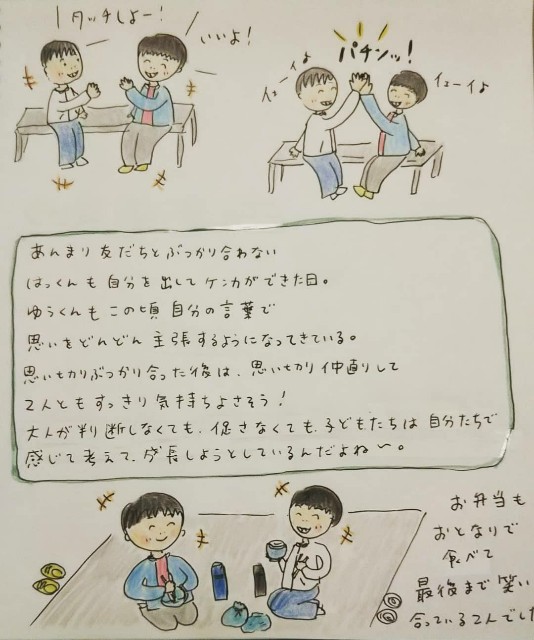 タッチしよー!
いいよ!
パチンッ!
イェーイよ
イェーイよ
あんまり友だちとぶつかり合わない
はっくんも自分を出してケンカができた日。
ゆうくんもこの頃自分の言葉で
思いをどんどん主張するようになってきている。
思いっ切りぶつかり合った後は、思いっ切り仲直りして
2人ともすっきり気持ちよさそう!
大人が判断しなくても、促さなくても、子どもたちは自分たちで
感じて考えて、成長しようとしているんだよね〜。
お弁当も
おとなりで
食べて
最後まで笑い
合っている2人でした